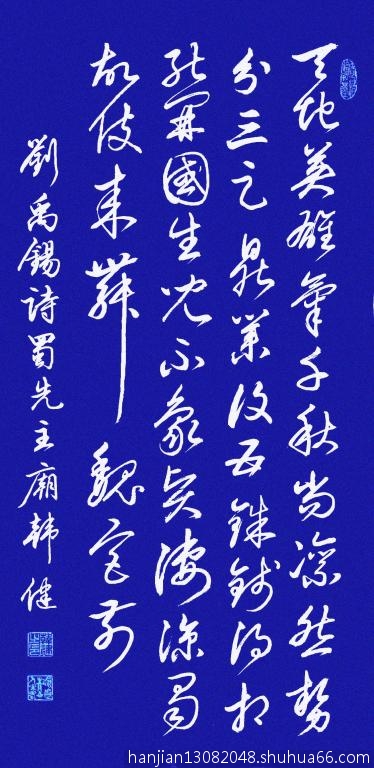 天地英雄氣千秋尚凛然勢
分三足鼎業復五銖錢得相
能開國生兒不象賢淒涼蜀
故伎來舞魏宮前
劉禹錫詩蜀先主廟韓健
hanjian13082048.shuhua66.com